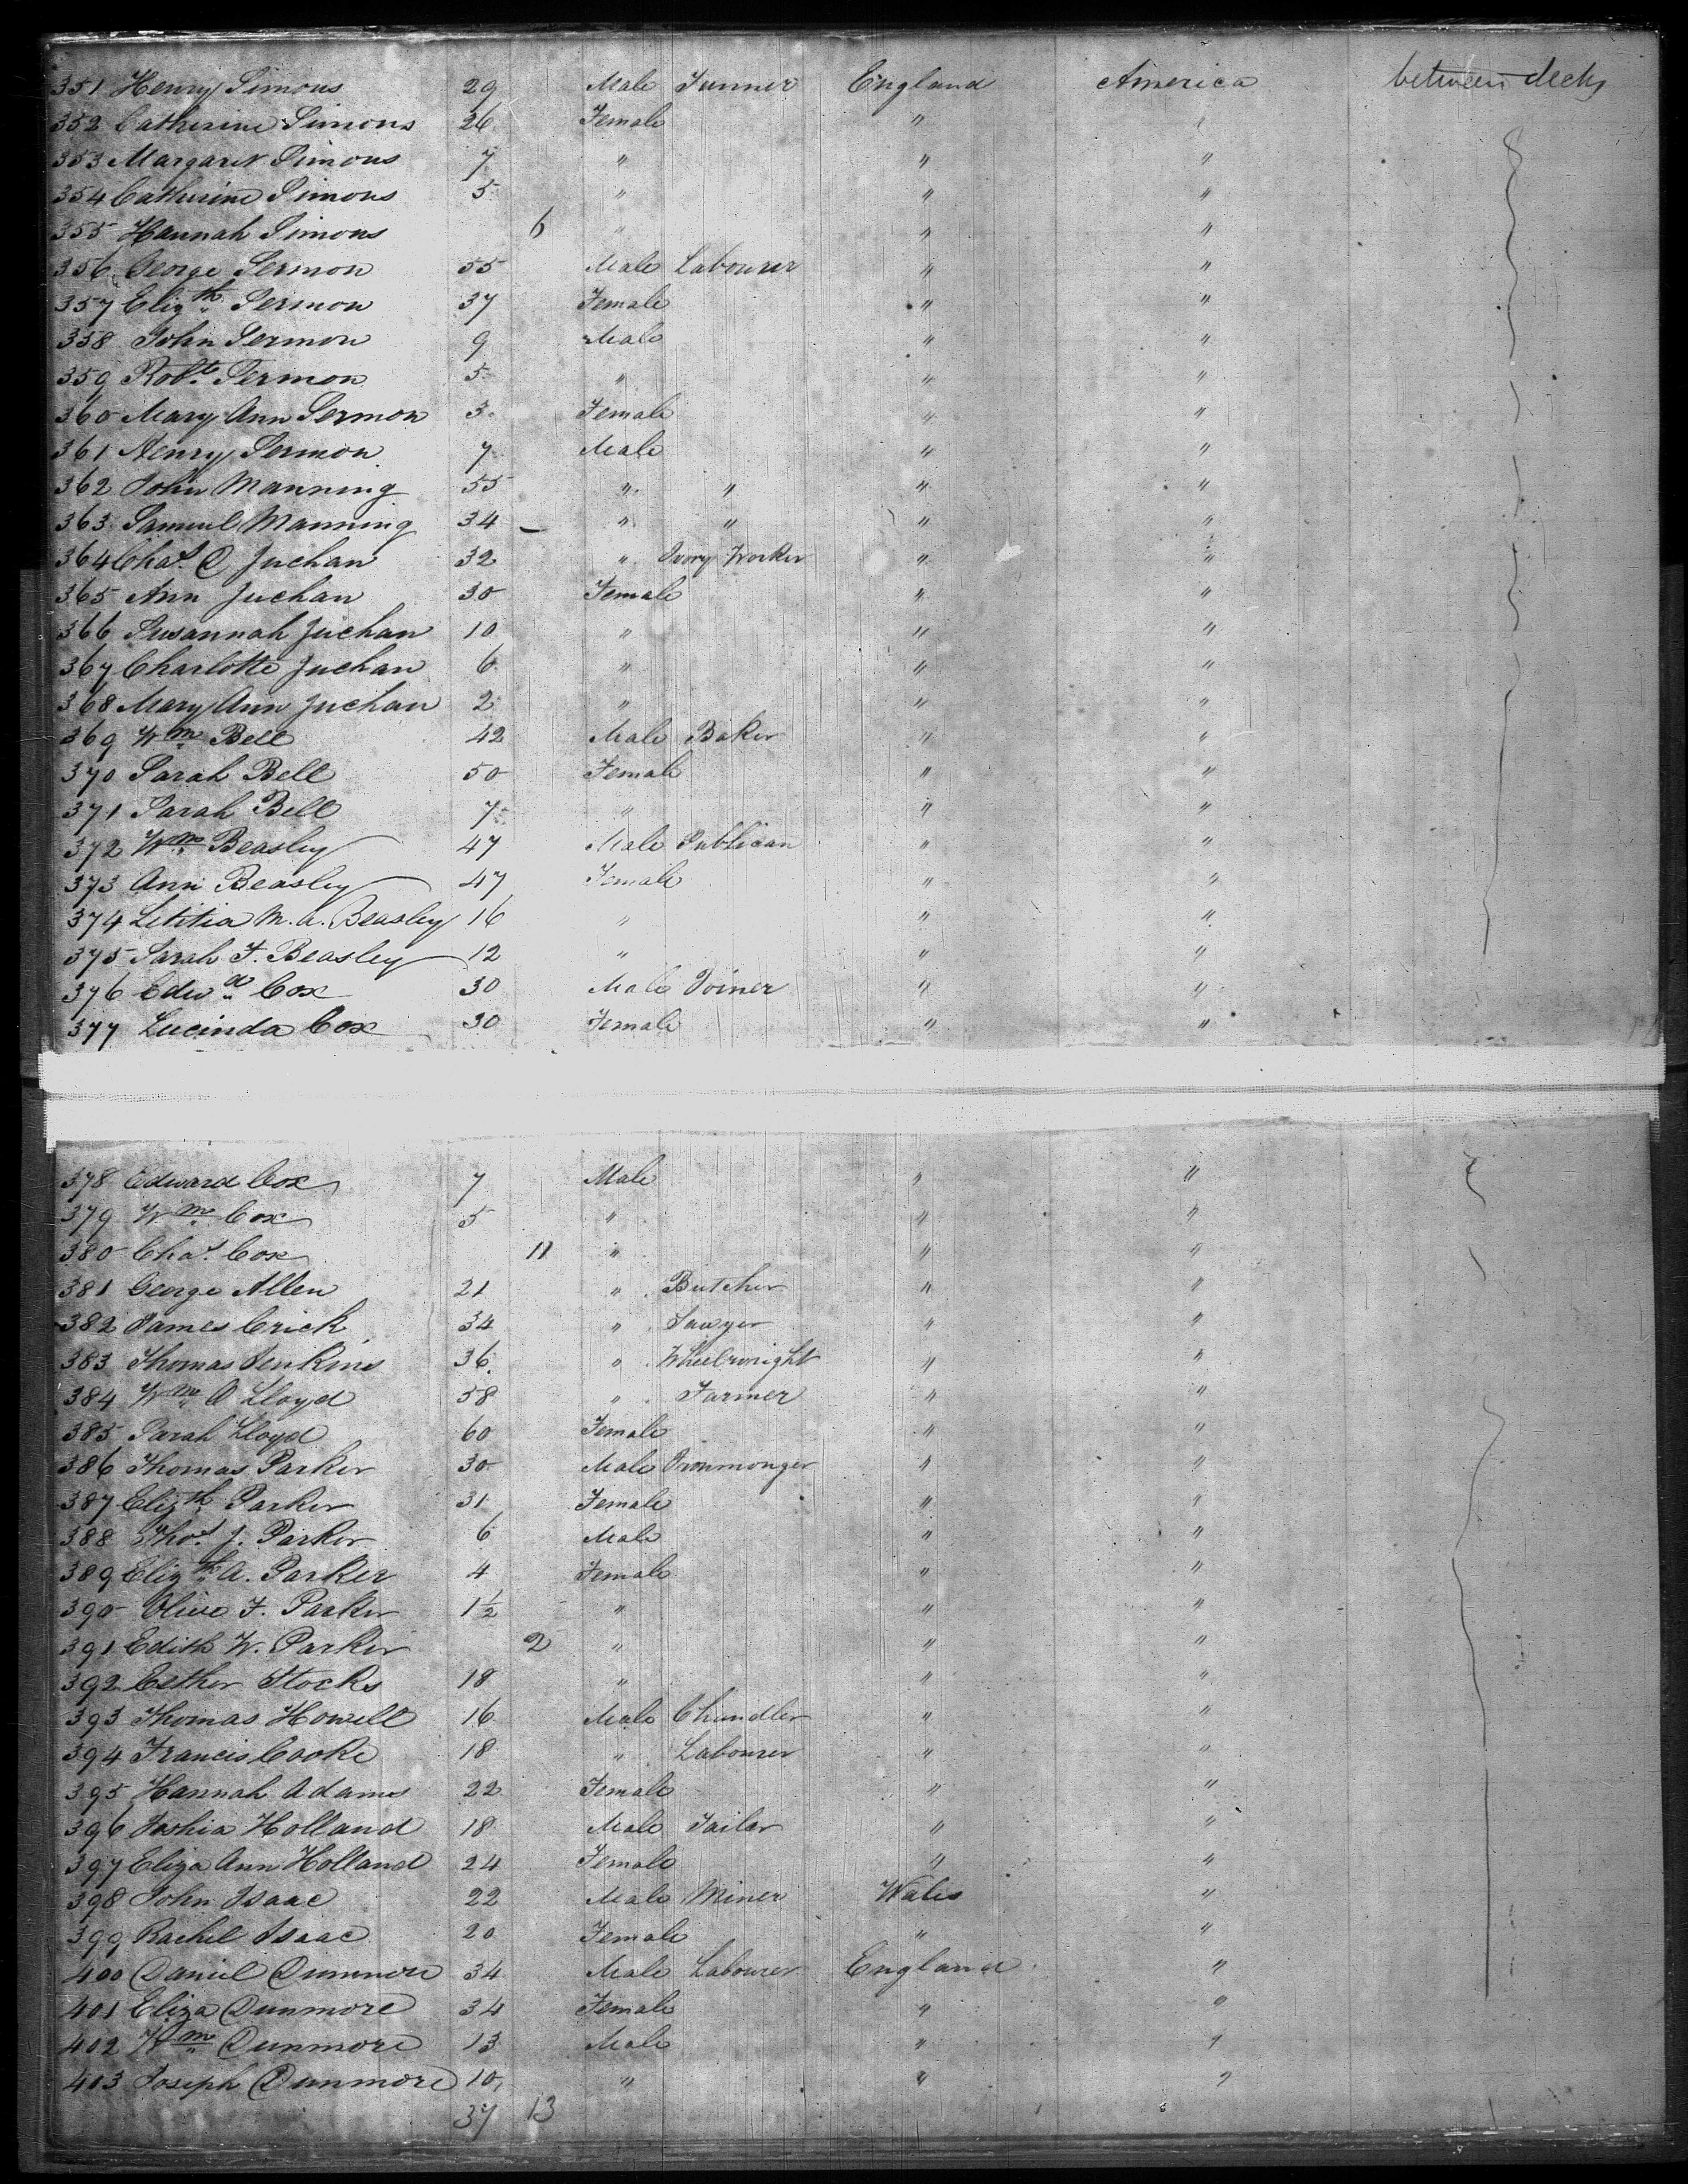 351 Henry Simons 29 Male Tunner England America between decks
352 Catherine Simons 26 Female " "
353 Margaret Simons 7 " " "
354 Catherine Simons 5 " " "
355 Hannah Simons 6 " " "
356 George Sermon 55 Male Labourer " "
357 Elizth Sermon 37 Female " "
358 John Sermon 9 Male " "
359 Robt Sermon 5 " " "
360 Mary Ann Sermon 3 Female " "
361 Henry Sermon 7 Male " "
362 John Manning 55 " " " "
363 Samuel Manning 34 " " " "
364 Chas D Juchan 32 " Ivory Worker " "
365 Ann Juchan 30 Female " "
366 Susannah Juchan 10 " " "
367 Charlotte Juchan 6 " " "
368 Mary Ann Juchan 2 " " "
369 Wm Bell 42 Male Baker " "
370 Sarah Bell 50 Female " "
371 Sarah Bell 7 " " "
372 Wm Beasley 47 Male Publican " "
373 Ann Beasley 47 Female " "
374 Letitia M. A. Beasley 16 " " "
375 Sarah F. Beasley 12 " " "
376 Edwd Cox 30 Male Joiner " "
377 Lucinda Cox 30 Female " "
378 Edward Cox 7 Male " "
379 Wm Cox 5 " " "
380 Chas Cox 11 " " "
381 George Allen 21 " Butcher " "
382 James Crick 34 " Sawyer " "
383 Thomas Jenkins 36 " Wheelwright " "
384 Wm O Lloyd 58 " Farmer " "
385 Sarah Lloyd 60 Female " "
386 Thomas Parker 30 Male Ironmonger " "
387 Elizth Parker 31 Female " "
388 Thos J. Parker 6 Male " "
389 Elizth A. Parker 4 Female " "
390 Olive F. Parker 1½ " " "
391 Edith W. Parker 2 " " "
392 Esther Stocks 18 " " "
393 Thomas Howell 16 Male Chandler " "
394 Francis Cooke 18 " Labourer " "
395 Hannah Adams 22 Female " "
396 Joshia Holland 18 Male Tailor " "
397 Eliza Ann Holland 24 Female " "
398 John Isaac 22 Male Miner Wales "
399 Rachel Isaac 20 Female " "
400 Daniel Dunmore 34 Male Labourer England "
401 Eliza Dunmore 34 Female " "
402 Wm Dunmore 13 Male " "
403 Joseph Dunmore 10 " " "
37 13